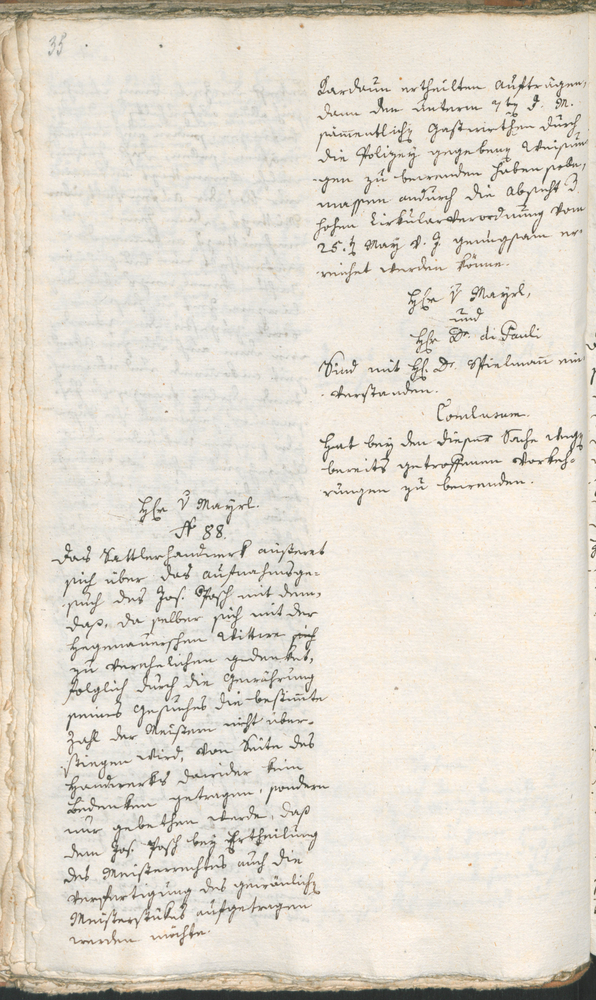 35
Kardaun ertheilten Aufträgen,
dann den unterm 7ten d. M.
sämmentlichen Gastwirthen durch
die Polizey gegebenen Weisun-
gen zu bewenden haben, sohin
massen andurch die Absicht d.
hohen Cirkularverordnung vom
25.t. May v. J. genugsam er-
reichet werden könne.
Hr. v Mayrl,
und
Hr. Dr. di Pauli
Sind mit H. Dr. Spielmann ein-
verstanden.
Conclusum.
Hat bey den dieser Sache wegen
bereits getroffenen Vorkeh-
rungen zu bewenden.
Hr. v Mayrl.
N 88.
Das Sattlerhandwerk äußeret
sich über das Aufnahmsge-
such des Jos. Posch mit dem,
daß, da selber sich mit der
Hegenauerschen Wittwe sich
zu verehelichen gedenket,
folglich durch die Gewährung
seines Gesuches die bestimte
Zahl der Meistern nicht über-
stiegen wird, von Seite des
Handwerks dawider kein
Bedenken getragen, sondern
nur gebethen werde, daß
dem Jos. Posch bey Ertheilung
des Meisterrechtes auch die
Verfertigung des gewönlichen
Meisterstükes aufgetragen
werden möchte.